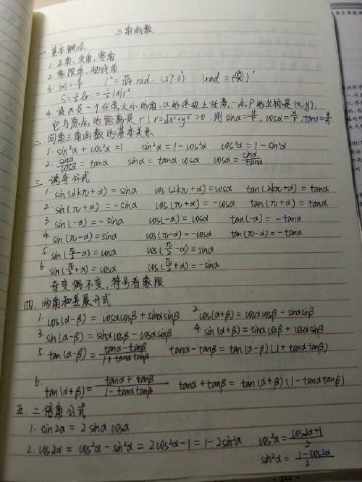 三角函数
一. 基本概念
1. 正角, 负角, 零角
2. 象限角, 轴线角
3. |α| = l/r  1° = π/180 rad  1 rad = (180/π)°
S = 1/2 lr = 1/2 |α| r²
4. 设α是一个任意大小的角, α的终边上任意一点P的坐标是(x, y),
它与原点的距离是 r (r = √x²+y² > 0) 则 sinα = y/r, cosα = x/r, tanα = y/x
二. 同角三角函数的基本关系
1. sin²α + cos²α = 1  sin²α = 1 - cos²α  cos²α = 1 - sin²α
2. sinα/cosα = tanα  sinα = tanα cosα  cosα = sinα/tanα
三. 诱导公式
1. sin(2kπ+α) = sinα  cos(2kπ+α) = cosα  tan(2kπ+α) = tanα
2. sin(π+α) = -sinα  cos(π+α) = -cosα  tan(π+α) = tanα
3. sin(-α) = -sinα  cos(-α) = cosα  tan(-α) = -tanα
4. sin(π-α) = sinα  cos(π-α) = -cosα  tan(π-α) = -tanα
5. sin(π/2-α) = cosα  cos(π/2-α) = sinα
6. sin(π/2+α) = cosα  cos(π/2+α) = -sinα
奇变偶不变, 符号看象限
四. 两角和差展开式
1. cos(α-β) = cosαcosβ + sinαsinβ  2. cos(α+β) = cosαcosβ - sinαsinβ
3. sin(α-β) = sinαcosβ - cosαsinβ  4. sin(α+β) = sinαcosβ + cosαsinβ
5. tan(α-β) = tanα-tanβ/1+tanαtanβ  tanα-tanβ = tan(α-β)(1+tanαtanβ)
6. tan(α+β) = tanα+tanβ/1-tanαtanβ  tanα+tanβ = tan(α+β)(1-tanαtanβ)
五. 二倍角公式
1. sin2α = 2sinαcosα
2. cos2α = cos²α - sin²α = 2cos²α - 1 = 1 - 2sin²α  cos²α = cos2α+1/2
sin²α = 1-cos2α/2